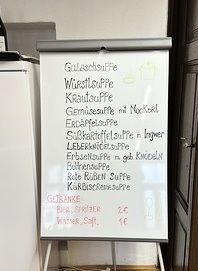 Gulaschsuppe
Würstlsuppe
Krautsuppe
Gemüsesuppe mit Nockerl
Erdäpfelsuppe
Süßkartoffelsuppe m Ingwer
Leberknödelsuppe
Erbsensuppe m geb. Knödeln
Bohnensuppe
Rote Rüben Suppe
Kürbiscremesuppe
Getränke
Bier, Spritzer 2€
Wasser, Saft 1€